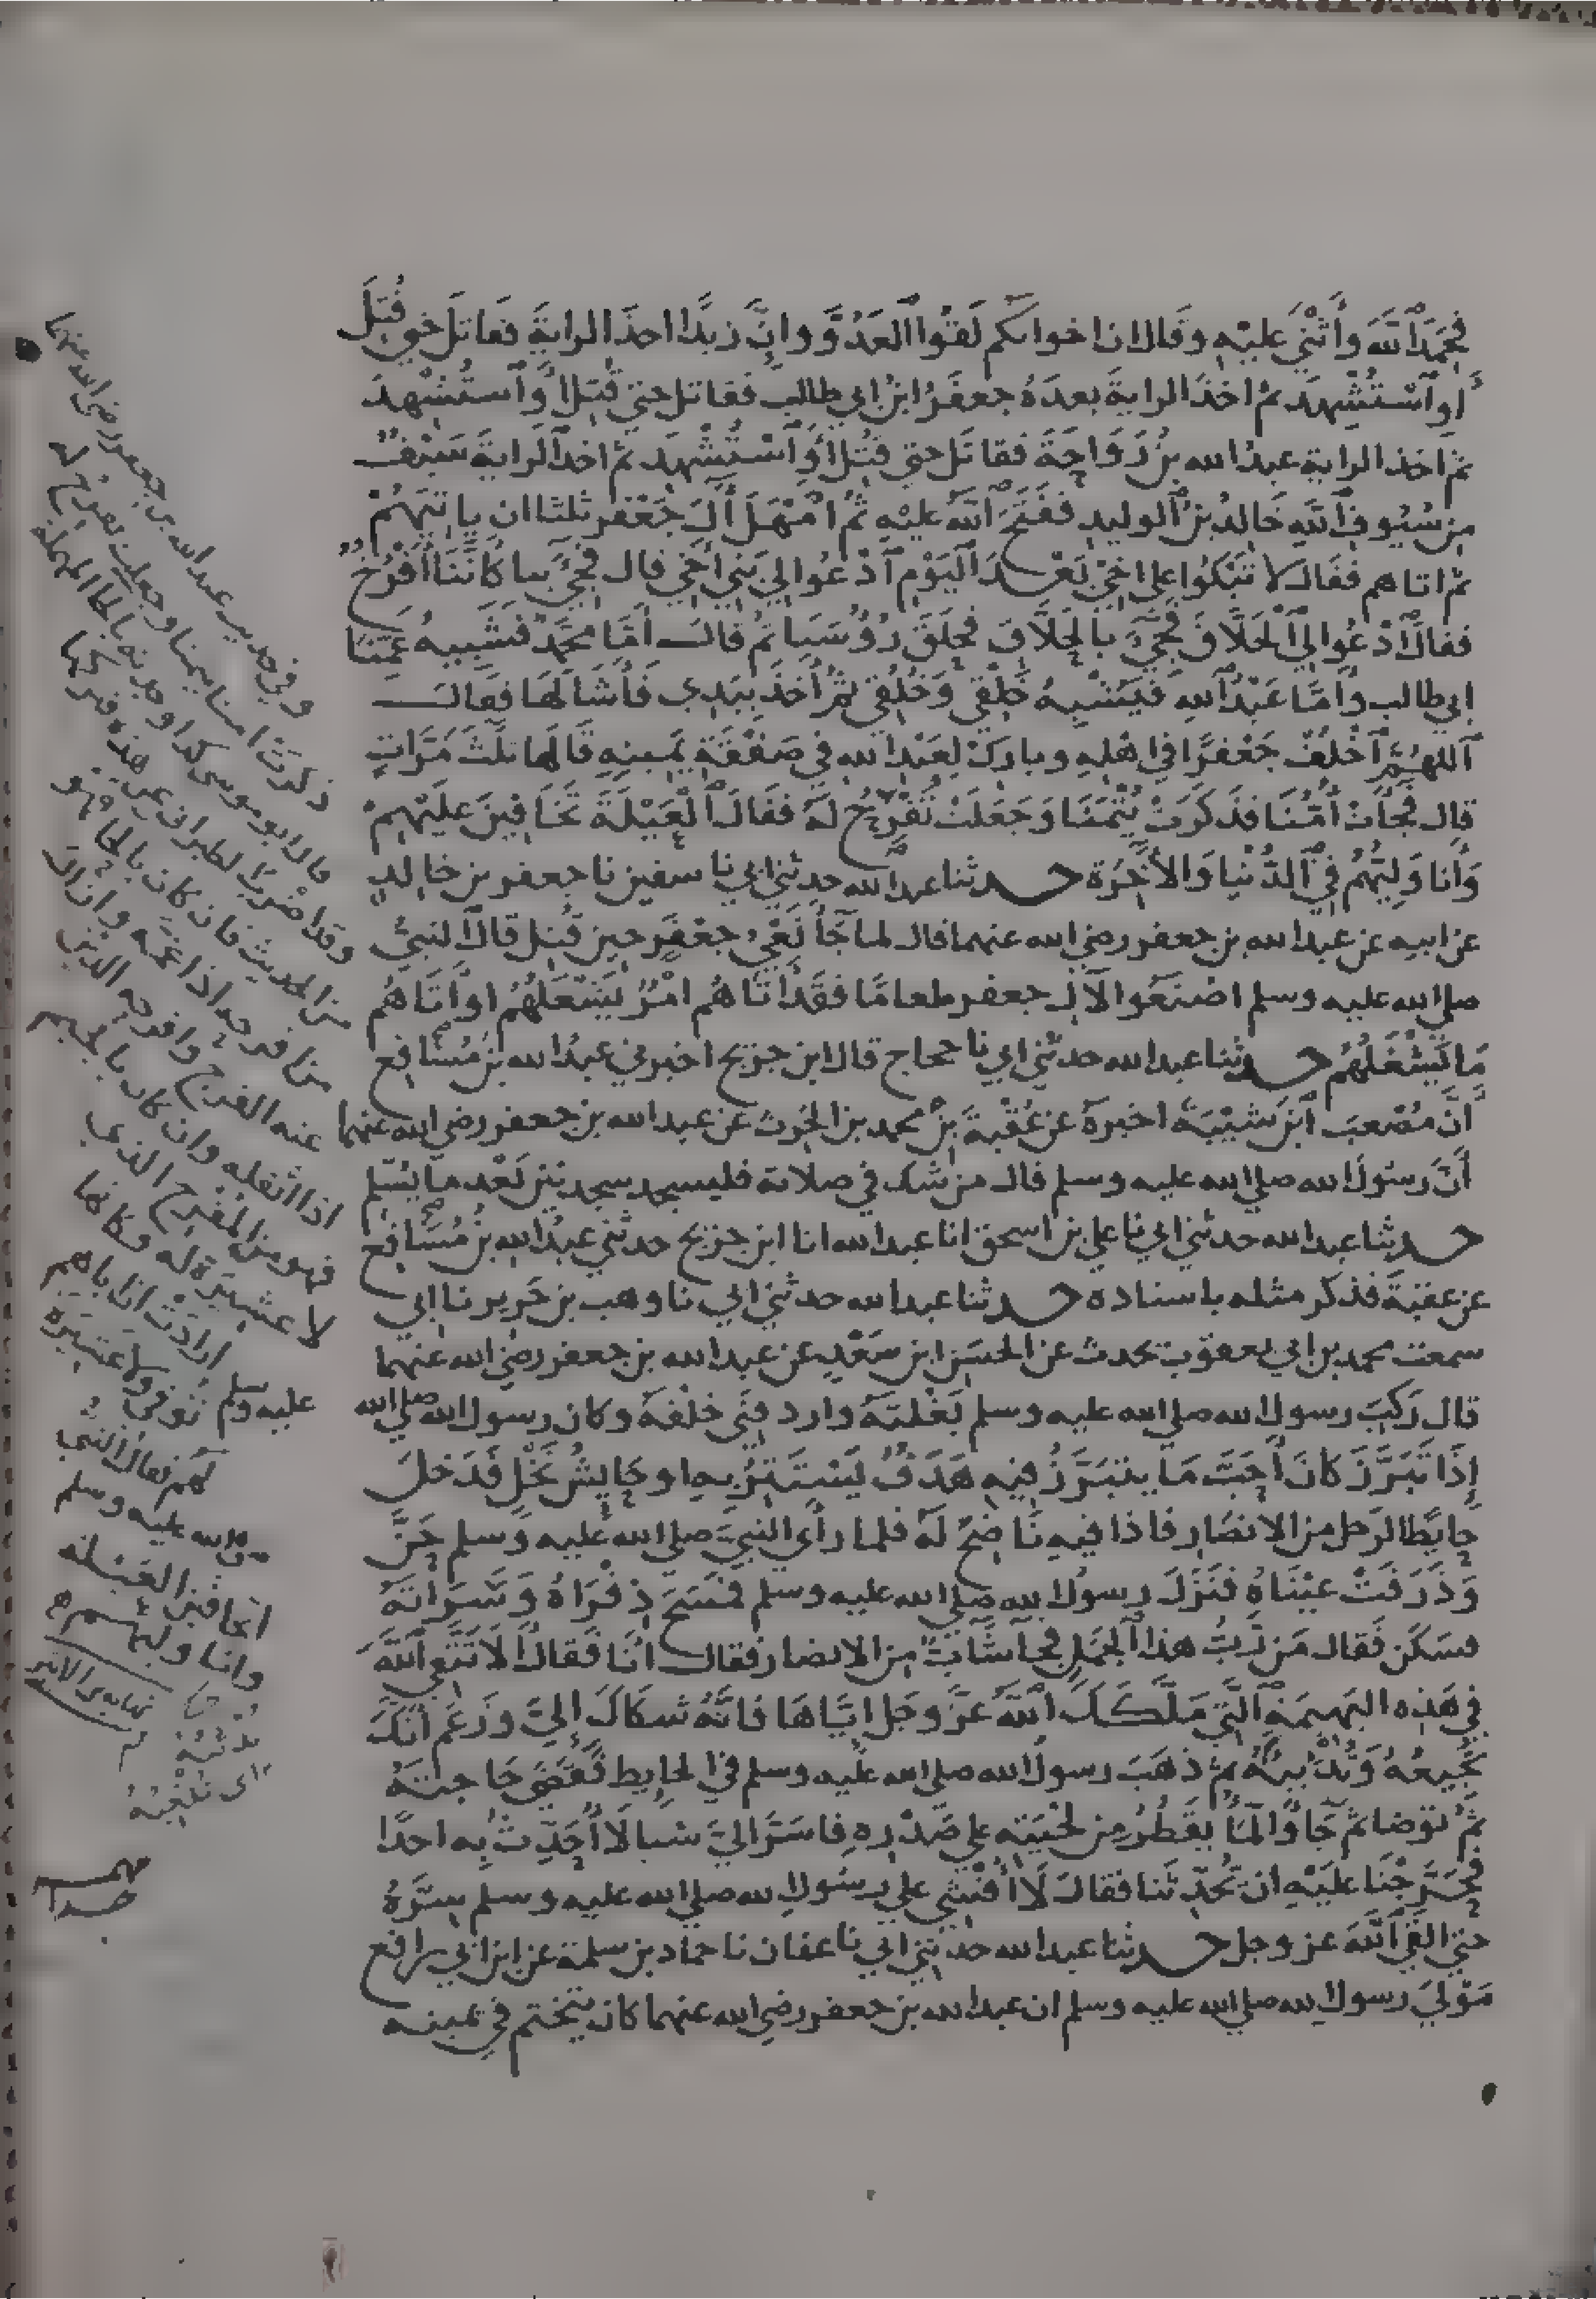 فحمد الله وأثنى عليه وقال ان اخوانكم لقوا العدو وان زيدا اخذ الراية فقاتل حتى قتل
أو استشهد ثم اخذ الراية بعده جعفر ابن ابي طالب فقاتل حتى قتل او استشهد
ثم اخذ الراية عبد الله بن رواحة فقاتل حتى قتل أو استشهد ثم اخذ الراية سيف
من سيوف الله خالد بن الوليد ففتح الله عليه ثم امهل آل جعفر ثلثا ان ياتيهم
ثم اتاهم فقال لا تبكوا على اخي بعد اليوم ادعوا لي بني أخي قال فجيء بنا كاننا افرخ
فقال ادعوا لي الحلاق فجيء بالحلاق فحلق رؤسنا ثم قال أما محمد فشبيه عمنا
ابي طالب وأما عبد الله فيشبه خلقي وخلقي ثم أخذ بيدي فأشالها فقال
اللهم اخلف جعفرا في اهله وبارك لعبد الله في صفقة يمينه قالها ثلث مرات
قال فجات أمنا فذكرت يتمنا وجعلت تفرح له فقال العيلة تخافين عليهم
وأنا وليهم في الدنيا والاخرة حدثنا عبد الله حدثني ابي نا سفين نا جعفر بن خالد
عن ابيه عن عبد الله بن جعفر رضي الله عنهما قال لما جا نعي جعفر حين قتل قال النبي
صلى الله عليه وسلم اصنعوا لآل جعفر طعاما فقد أتاهم امر يشغلهم او أتاهم
ما يشغلهم حدثنا عبد الله حدثني ابي نا حجاج قال ابن جريج اخبرني عبد الله بن مسافع
أن مصعب ابن شيبة اخبره عن عقبة بن محمد بن الحرث عن عبد الله بن جعفر رضي الله عنهما
أن رسول الله صلى الله عليه وسلم قال من شك في صلاته فليسجد سجدتين بعد ما يسلم
حدثنا عبد الله حدثني ابي نا علي بن اسحق انا عبد الله انا ابن جريج حدثني عبد الله بن مسافع
عن عقبة فذكر مثله باسناده حدثنا عبد الله حدثني ابي نا وهب بن جرير نا ابي
سمعت محمد بن ابي يعقوب يحدث عن الحسن ابن سعد عن عبد الله بن جعفر رضي الله عنهما
قال ركب رسول الله صلى الله عليه وسلم بغلته واردفني خلفه وكان رسول الله صلى الله
إذا تبرز كان أحب ما يتبرز فيه هدف يستتر به او حايش نخل فدخل
حايطا لرجل من الانصار فاذا فيه ناضح له فلما رأى النبي صلى الله عليه وسلم حن
وذرفت عيناه فنزل رسول الله صلى الله عليه وسلم فمسح ذفراه وسراته
فسكن فقال من رب هذا الجمل فجآ شاب من الانصار فقال انا فقال ألا تتقي الله
في هذه البهيمة التي ملكك الله عز وجل اياها فانه شكاك إلي وزعم انك
تجيعه وتدئبه ثم ذهب رسول الله صلى الله عليه وسلم في الحايط فقضى حاجته
ثم توضا ثم جا والما يقطر من لحيته على صدره فاسر الي شيا لا أحدث به احدا
فحرجنا عليه ان يحدثنا فقال لا أفشي على رسول الله صلى الله عليه وسلم سره
حتى القى الله عز وجل حدثنا عبد الله حدثني ابي نا عفان نا حماد بن سلمة عن ابن ابي رافع
مولى رسول الله صلى الله عليه وسلم ان عبد الله بن جعفر رضي الله عنهما كان يتختم في يمينه
وفي حديث عبد الله بن جعفر رضي الله عنهما
ذكرت امنا يتمنا وجعلت تفرح له
قال ابو موسى كذا وجدته بالحا المهملة
وقد اضرب الطبراني عن هذه فتركها
من الحديث فان كان بالحا فهو
من افرحه اذا غمه وازال
عنه الفرح وافرحه الدين
اذا اثقله وان كان بالجيم
فهو من المفرج الذي
لا عشيرة له فكانها
ارادت ان اباهم
توفي ولا عشيرة
لهم فقال النبي
صلى الله عليه وسلم
اتخافين العيلة
وانا وليهم
نهاية ابن الاثير